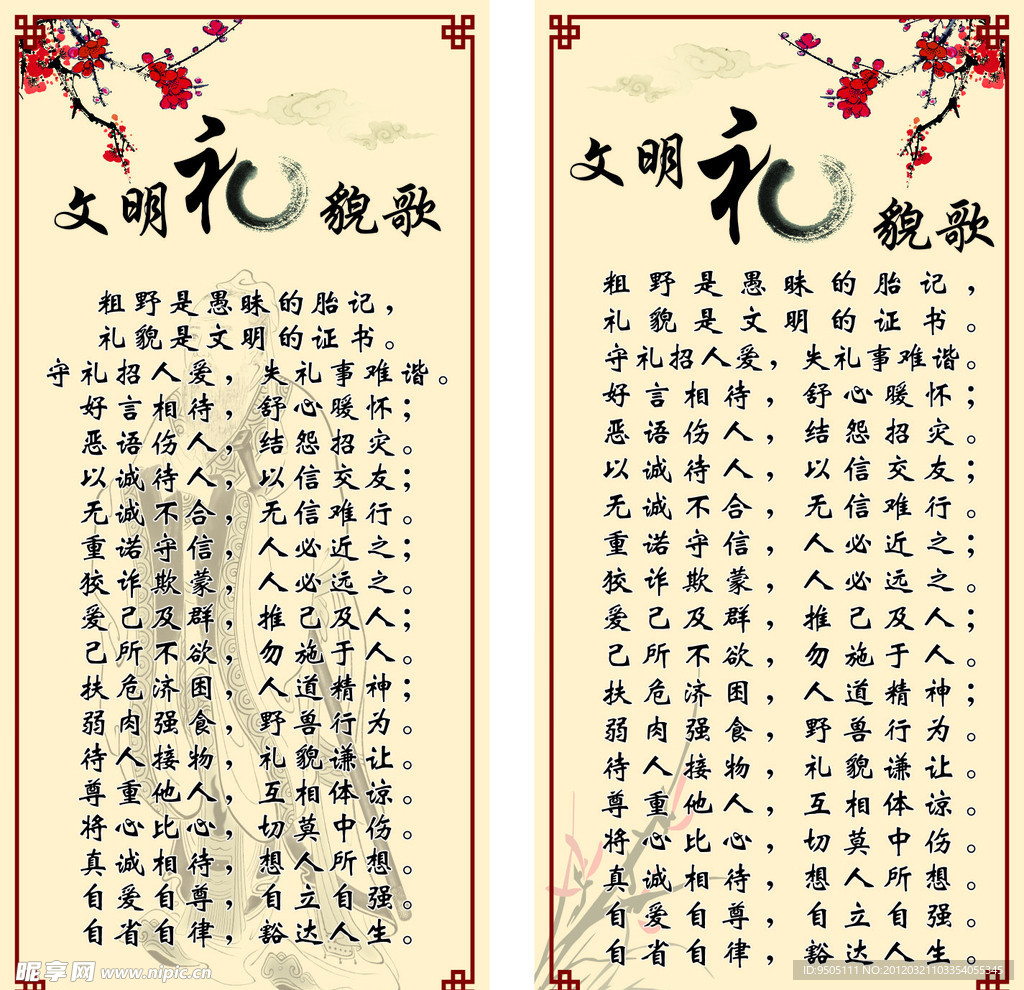 文明礼貌歌
粗野是愚昧的胎记，
礼貌是文明的证书。
守礼招人爱，失礼事难谐。
好言相待，舒心暖怀；
恶语伤人，结怨招灾。
以诚待人，以信交友；
无诚不合，无信难行。
重诺守信，人必近之；
狡诈欺蒙，人必远之。
爱己及群，推己及人；
己所不欲，勿施于人。
扶危济困，人道精神；
弱肉强食，野兽行为。
待人接物，礼貌谦让。
尊重他人，互相体谅。
将心比心，切莫中伤。
真诚相待，想人所想。
自爱自尊，自立自强。
自省自律，豁达人生。
昵享网 www.nipic.cn
文明礼貌歌
粗野是愚昧的胎记，
礼貌是文明的证书。
守礼招人爱，失礼事难谐。
好言相待，舒心暖怀；
恶语伤人，结怨招灾。
以诚待人，以信交友；
无诚不合，无信难行。
重诺守信，人必近之；
狡诈欺蒙，人必远之。
爱己及群，推己及人；
己所不欲，勿施于人。
扶危济困，人道精神；
弱肉强食，野兽行为。
待人接物，礼貌谦让。
尊重他人，互相体谅。
将心比心，切莫中伤。
真诚相待，想人所想。
自爱自尊，自立自强。
自省自律，豁达人生。
ID:9505111 NO:20120321103354055345